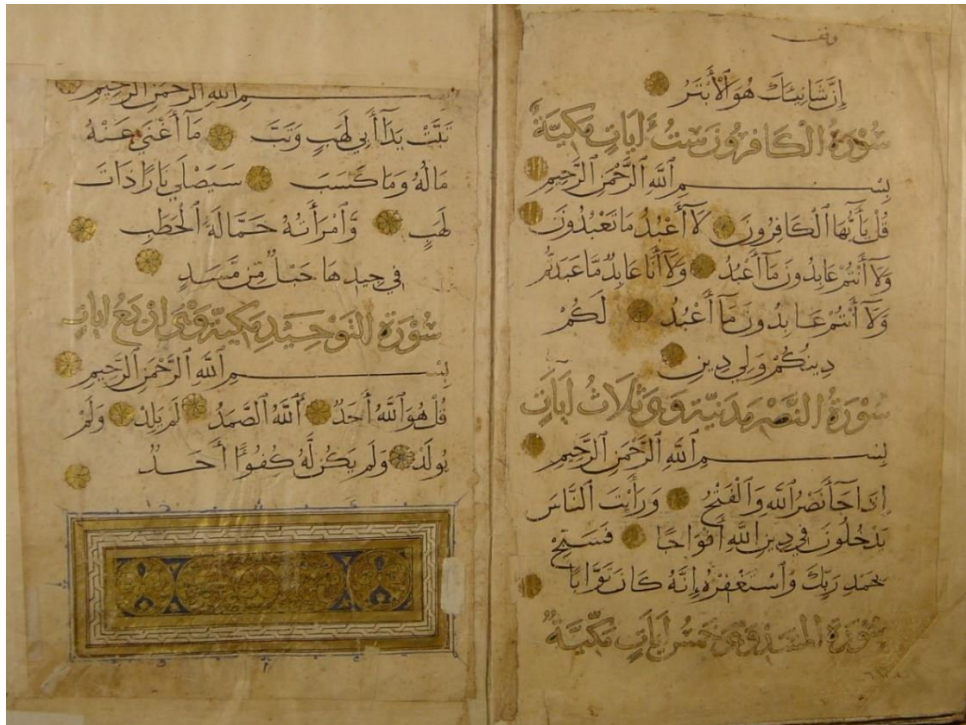 وقف
إِنَّ شَانِئَكَ هُوَ الْأَبْتَرُ
سُورَةُ الْكَافِرُونَ سِتُّ آيَاتٍ مَكِّيَّةٌ
بِسْمِ اللَّهِ الرَّحْمَنِ الرَّحِيمِ
قُلْ يَا أَيُّهَا الْكَافِرُونَ لَا أَعْبُدُ مَا تَعْبُدُونَ
وَلَا أَنْتُمْ عَابِدُونَ مَا أَعْبُدُ وَلَا أَنَا عَابِدٌ مَا عَبَدْتُمْ
وَلَا أَنْتُمْ عَابِدُونَ مَا أَعْبُدُ لَكُمْ
دِينُكُمْ وَلِيَ دِينِ
سُورَةُ النَّصْرِ مَدَنِيَّةٌ وَهِيَ ثَلَاثُ آيَاتٍ
بِسْمِ اللَّهِ الرَّحْمَنِ الرَّحِيمِ
إِذَا جَاءَ نَصْرُ اللَّهِ وَالْفَتْحُ وَرَأَيْتَ النَّاسَ
يَدْخُلُونَ فِي دِينِ اللَّهِ أَفْوَاجًا فَسَبِّحْ
بِحَمْدِ رَبِّكَ وَاسْتَغْفِرْهُ إِنَّهُ كَانَ تَوَّابًا
سُورَةُ الْمَسَدِ وَهِيَ خَمْسُ آيَاتٍ مَكِّيَّةٌ
بِسْمِ اللَّهِ الرَّحْمَنِ الرَّحِيمِ
تَبَّتْ يَدَا أَبِي لَهَبٍ وَتَبَّ مَا أَغْنَى عَنْهُ
مَالُهُ وَمَا كَسَبَ سَيَصْلَى نَارًا ذَاتَ
لَهَبٍ وَامْرَأَتُهُ حَمَّالَةَ الْحَطَبِ
فِي جِيدِهَا حَبْلٌ مِنْ مَسَدٍ
سُورَةُ التَّوْحِيدِ مَكِّيَّةٌ وَهِيَ أَرْبَعُ آيَاتٍ
بِسْمِ اللَّهِ الرَّحْمَنِ الرَّحِيمِ
قُلْ هُوَ اللَّهُ أَحَدٌ اللَّهُ الصَّمَدُ لَمْ يَلِدْ وَلَمْ
يُولَدْ وَلَمْ يَكُنْ لَهُ كُفُوًا أَحَدٌ